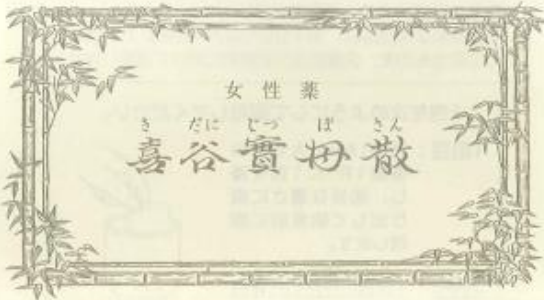 女性薬
き だに じつ ぼ さん
喜谷實母散